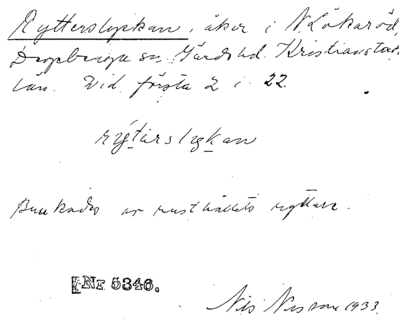 Rytterslyckan, åker i N. Lökaröd,
Degeberga sn. Gärds hd. Kristianstads
län. Vid första L i 22.
rýtarslykan
Brukades av rusthållets ryttare.
Nr 5346.
Nils Nilsson 1933.